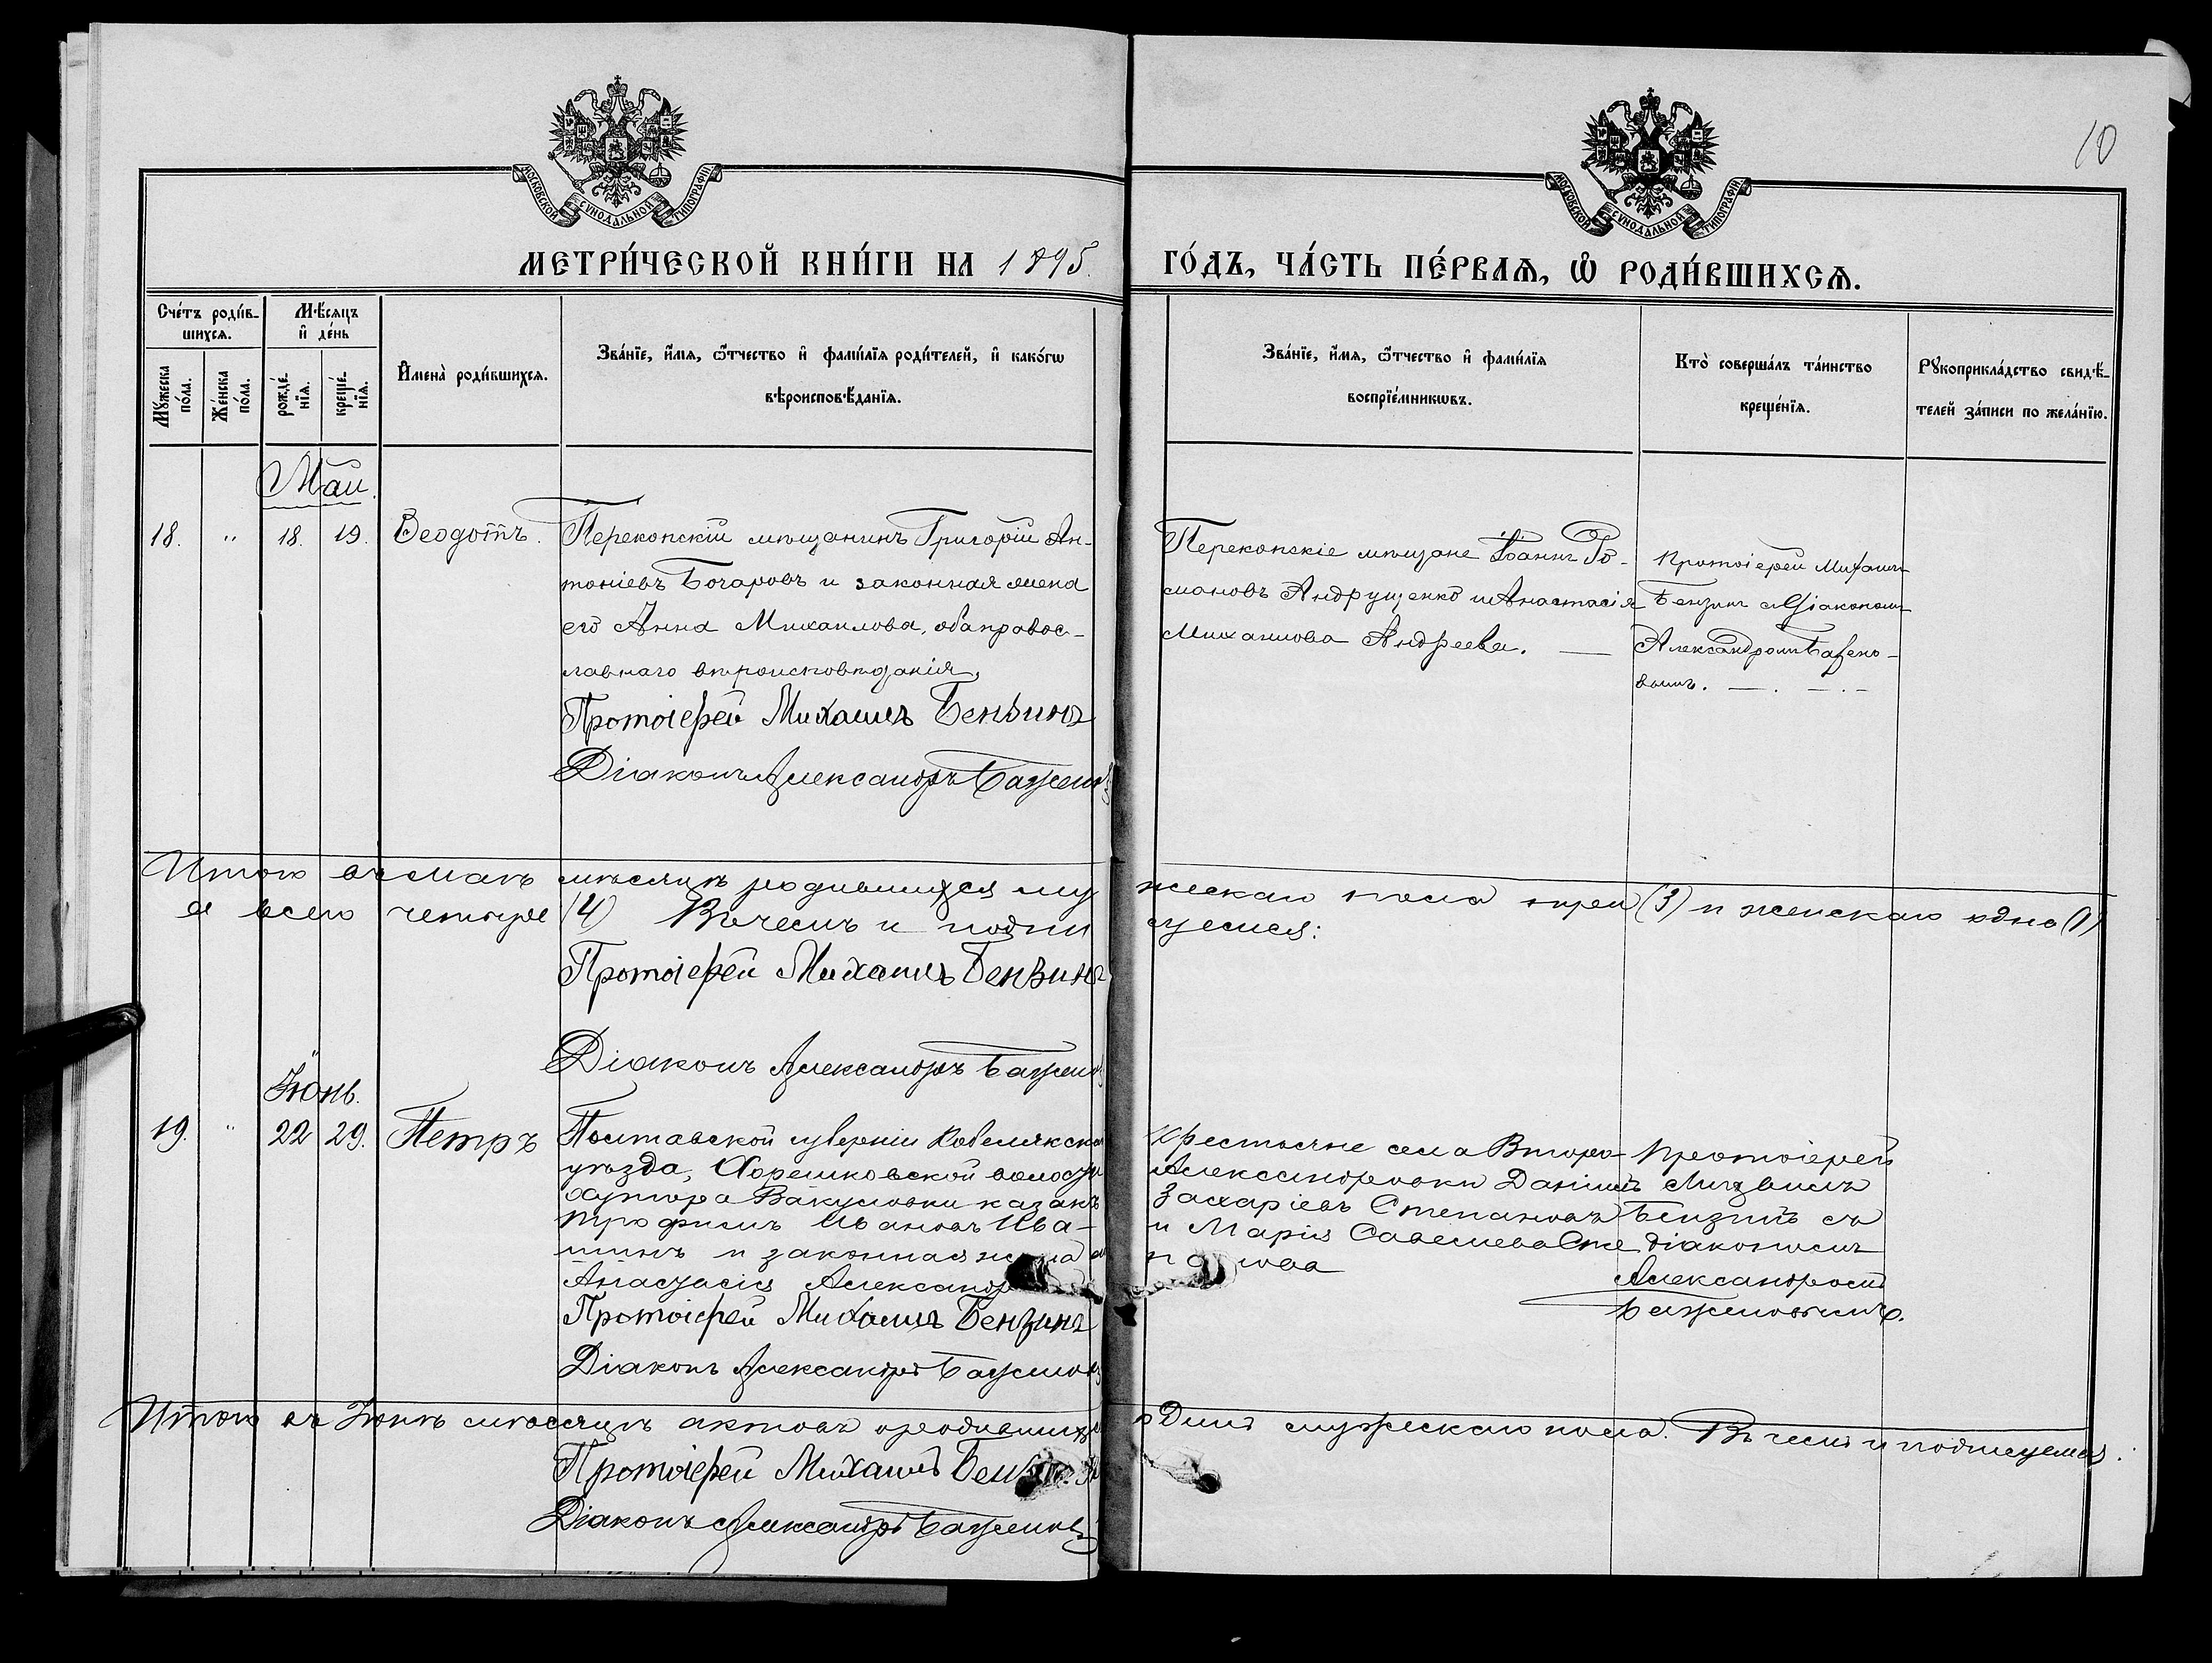 10
МОСКОВСКОЙ СУНОДАЛЬНОЙ ТИПОГРАФІИ
МОСКОВСКОЙ СУНОДАЛЬНОЙ ТИПОГРАФІИ
МЕТРИ́ЧЕСКОЙ КНИ́ГИ НА 1895.
ГО́ДЪ, ЧА́СТЬ ПЕ́РВАѦ, Ѡ҆ РОДИ́ВШИХСѦ.
Сче́тъ роди́в-
шихсѧ.
Мѣ́сѧцъ
и҆ де́нь
Мꙋ́жеска
по́ла.
Же́нска
по́ла.
рожде́-
нїѧ.
креще́-
нїѧ.
И҆мена̀ роди́вшихсѧ.
Зва́нїе, и҆́мѧ, ѻ҆́тчество и҆ фами́лїѧ роди́телей, и҆ како́гѡ
вѣроисповѣ́данїѧ.
Зва́нїе, и҆́мѧ, ѻ҆́тчество и҆ фами́лїѧ
воспрїе́мникѡвъ.
Кто̀ соверша́лъ та́инство
креще́нїѧ.
Рꙋкоприкла́дство свидѣ́-
телей за́писи по жела́нїю.
Май.
18. " 18. 19. Ѳеодотъ.
Перекопскій мѣщанинъ Григорій Ан-
тоніевъ Бочаровъ и законная жена
его Анна Михаилова, оба правос-
лавнаго вѣроисповѣданія.
Протоіерей Михаилъ Бензинъ
Діаконъ Александръ Баженов
Перекопскіе мѣщане Іоаннъ Ро-
мановъ Андрущенко и Анастасія
Михаилова Андреева.
Протоіерей Михаилъ
Бензинъ съ Діакономъ
Александромъ Бажено-
вымъ.
Итого въ маѣ мѣсяцѣ родившихся мужескаго пола три (3) и женскаго одна (1)
а всего четыре (4) Въ чемъ и подписуемся:
Протоіерей Михаилъ Бензинъ
Діаконъ Александръ Баженов
Іюнь.
19. " 22 29. Петръ
Полтавской губерніи Кобелякска
уѣзда, волости
хутора Вакуловки казакъ
Трофимъ Ивановъ Ива-
шинъ и законная жена
Анастасія Александр
Протоіерей Михаилъ Бензинъ
Діаконъ Александръ Баженов
Крестьяне села Второ-
Александровки Даніилъ
Захаріевъ Степановъ
и Марія Савельева Сте
Протоіерей
Михаилъ
Бензинъ съ
діакономъ
Александромъ
Баженовымъ.
Итого въ Іюнѣ мѣсяцѣ актовъ о родившихся одинъ мужескаго пола. Въ чемъ и подписуемся.
Протоіерей Михаилъ Бензинъ
Діаконъ Александръ Баженовъ